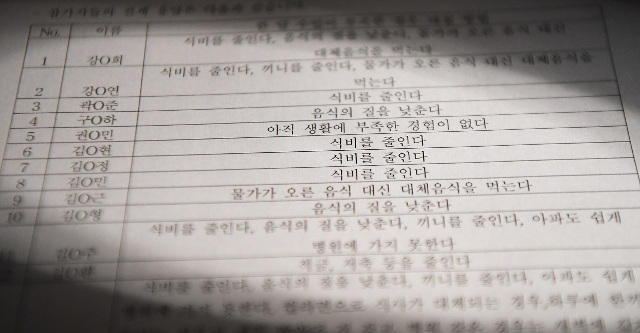 No. 이름
식비를 줄인다, 음식의 질을 낮춘다, 물가가 오른 음식 대신
1 강O희 대체음식을 먹는다
식비를 줄인다, 끼니를 줄인다, 물가가 오른 음식 대신 대체음식을
2 강O연 먹는다
3 곽O준 식비를 줄인다
4 구O하 음식의 질을 낮춘다
5 권O민 아직 생활에 부족한 경험이 없다
6 김O현 식비를 줄인다
7 김O정 식비를 줄인다
8 김O민 식비를 줄인다
9 김O근 물가가 오른 음식 대신 대체음식을 먹는다
10 김O왕 음식의 질을 낮춘다
식비를 줄인다, 음식의 질을 낮춘다, 끼니를 줄인다, 아파도 쉽게
김O주 병원에 가지 못한다
저금, 저축 등을 줄인다
식비를 줄인다, 음식의 질을 낮춘다, 끼니를 줄인다, 아파도 쉽게